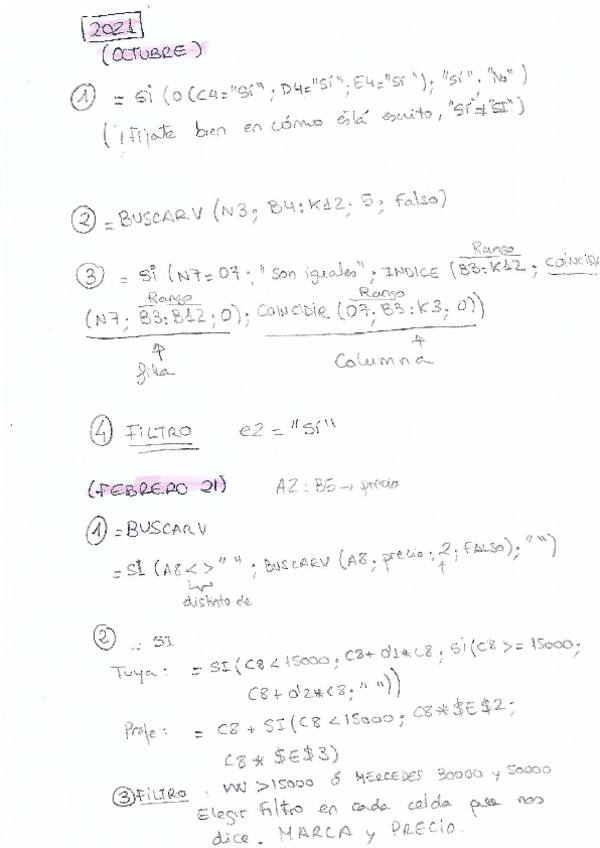 2021
(OCTUBRE)
① = Si (O (C4="Sí"; D4="Sí"; E4="Sí"); "Sí"; "No")
(¡Fíjate bien en cómo está escrito, "Sí"≠"SI")
② = BUSCARV (N3; B4:K12; 5; Falso)
③ = Si (N7=O7; "Son iguales"; INDICE (B3:K12; COINCIDI
Rango
(N7; B3:B12; 0); COINCIDIR (O7; B3:K3; 0))
Rango Rango
fila Columna
④ FILTRO e2 = "Sí"
(FEBRERO 21) A2:B5 → precio
① = BUSCARV
= SI (A8<>" "; BUSCARV (A8; precio; 2; FALSO); " ")
distinto de
② .. SI
Tuya: = SI (C8<15000; C8+0'1*C8; Si (C8>=15000;
C8+0'2*C8; " "))
Profe: = C8 + SI (C8<15000; C8*$E$2;
C8*$E$3)
③ FILTRO . VW >15000 ó MERCEDES 30000 y 50000
Elegir Filtro en cada celda que nos
dice. MARCA y PRECIO.